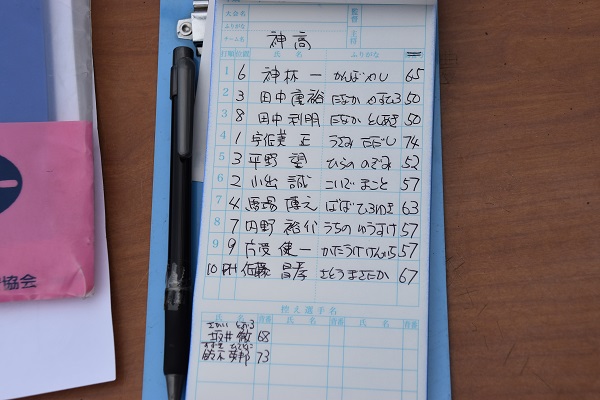 大会名 監督
ふりがな
チーム名 神高 主将
打順 位置 氏名 ふりがな
1 6 神林 一 かんばやし 65
2 3 田中 康裕 たなか やすひろ 50
3 8 田中 利明 たなか としあき 50
4 1 宇佐美 正 うさみ ただし 74
5 3 平野 望 ひらの のぞみ 52
6 2 小出 誠 こいで まこと 57
7 4 馬場 博之 ばば ひろゆき 63
8 7 内野 裕介 うちの ゆうすけ 57
9 9 片後 健一 かたうけ けんいち 57
10 PH 佐藤 昌孝 さとう まさたか 67
控え選手名
氏名 背番 氏名 背番 氏名 背番
さかい とおる
坂井 徹 68
鈴木 英邦 73
協会